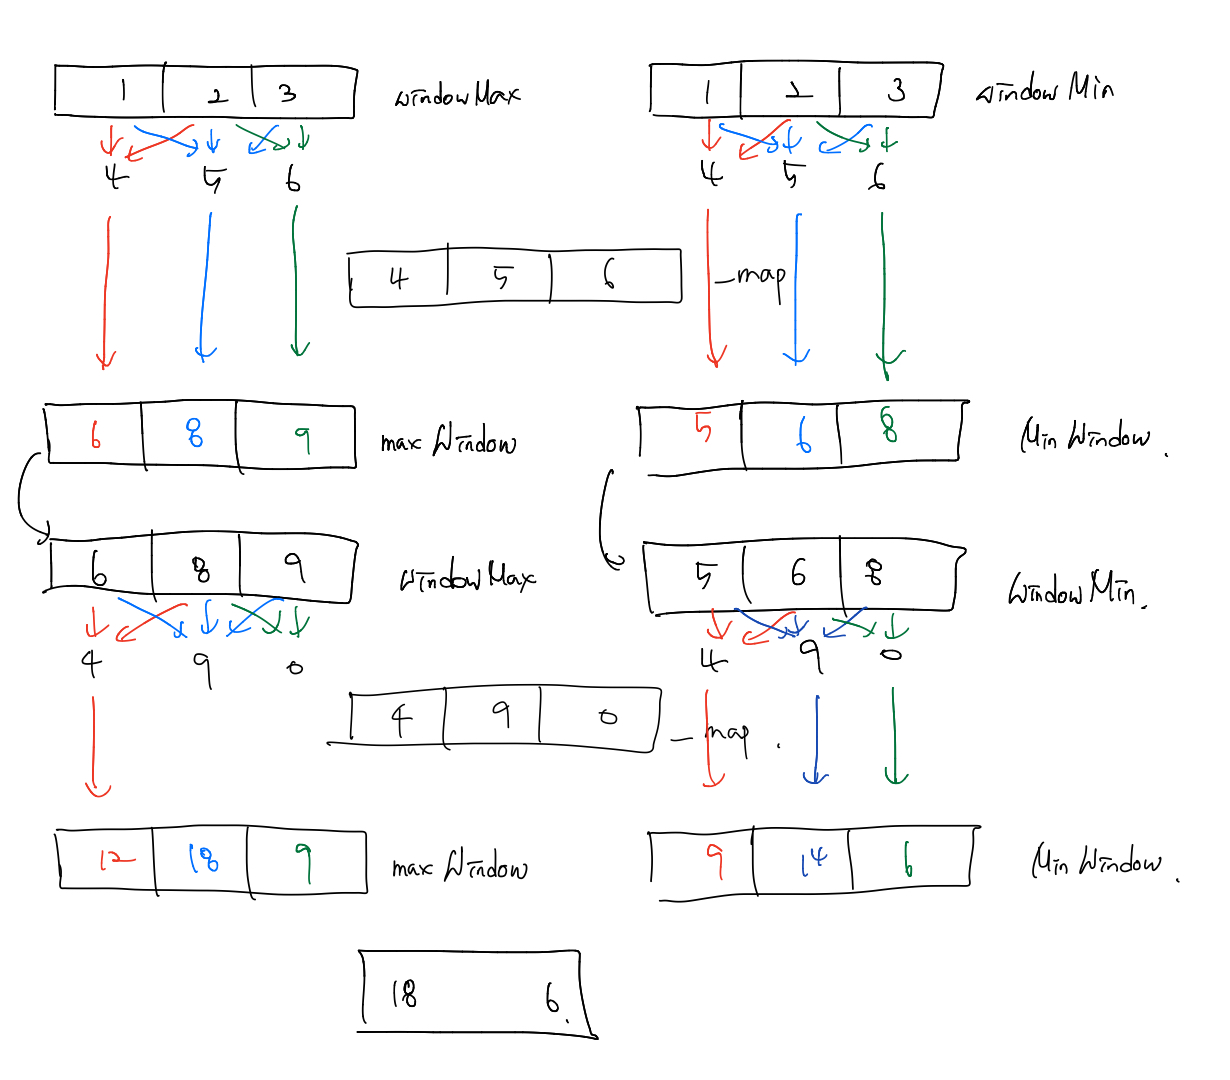 1 2 3 windowMax 1 2 3 windowMin
4 5 6 4 5 6
4 5 6 _map
6 8 9 max Window 5 6 8 Min Window.
6 8 9 windowMax 5 6 8 WindowMin.
4 9 0 4 9 0
4 9 0 _map.
12 18 9 max Window 9 14 6 Min Window.
18 6.